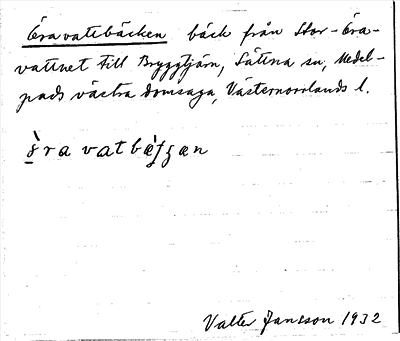 Öravattbäcken bäck från Stor-Öra-
vattnet till Bryggtjärn, Sättna sn, Medel-
pads västra domsaga, Västernorrlands l.
Valter Jansson 1932